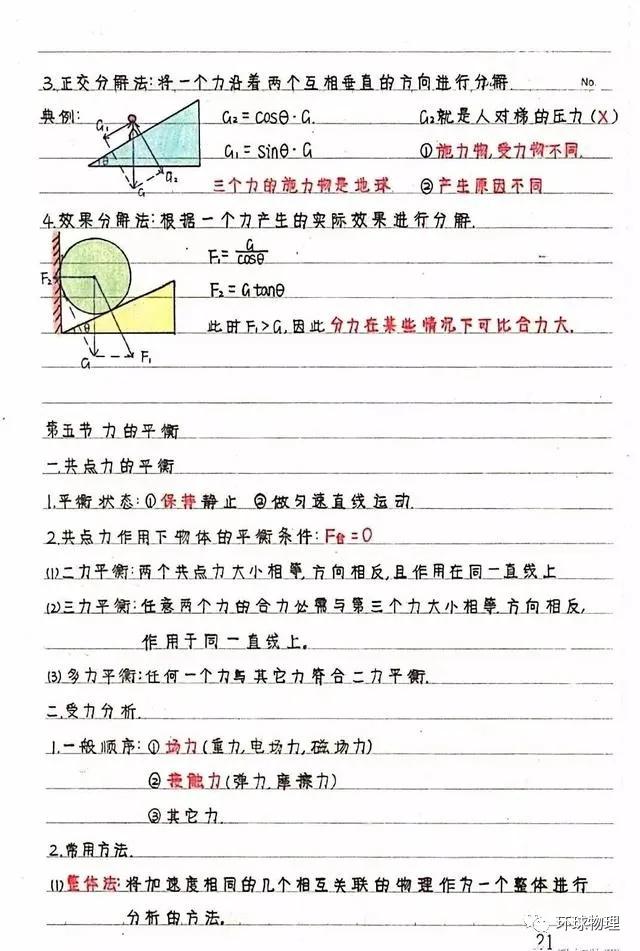 3.正交分解法:将一个力沿着两个互相垂直的方向进行分解. No.
典例: G₂=cosθ·G. G₂就是人对梯的压力(X)
G₁ θ G G₂
G₁=sinθ·G ①施力物,受力物不同.
三个力的施力物是地球. ②产生原因不同
4.效果分解法:根据一个力产生的实际效果进行分解.
F₁=G/cosθ
F₂ θ G F₁
F₂=Gtanθ
此时F₁>G,因此分力在某些情况下可比合力大.
第五节 力的平衡
一.共点力的平衡
1.平衡状态:①保持静止 ②做匀速直线运动.
2.共点力作用下物体的平衡条件:F合=0
(1)二力平衡:两个共点力大小相等,方向相反,且作用在同一直线上
(2)三力平衡:任意两个力的合力必需与第三个力大小相等.方向相反,
作用于同一直线上。
(3)多力平衡:任何一个力与其它力符合二力平衡.
二.受力分析.
1.一般顺序:①场力(重力,电场力,磁场力)
②接触力(弹力.摩擦力)
③其它力.
2.常用方法.
(1)整体法:将加速度相同的几个相互关联的物理作为一个整体进行
分析的方法。
环球物理
21